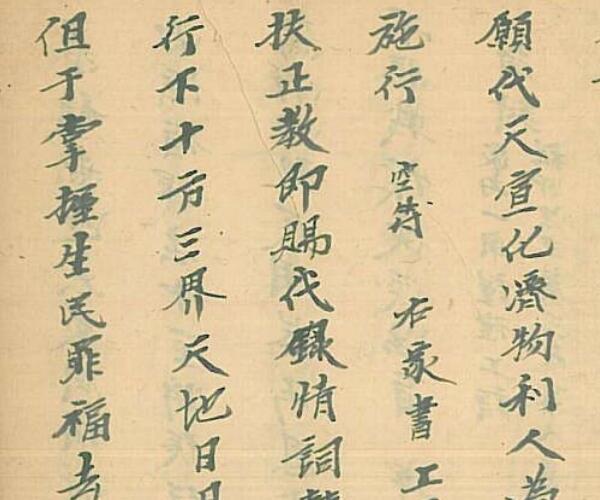 願代天宣化濟物利人為
施行 空符 右家書上
扶正教即賜代錄情詞
行下十方三界天地日月
但于掌握生民罪福去